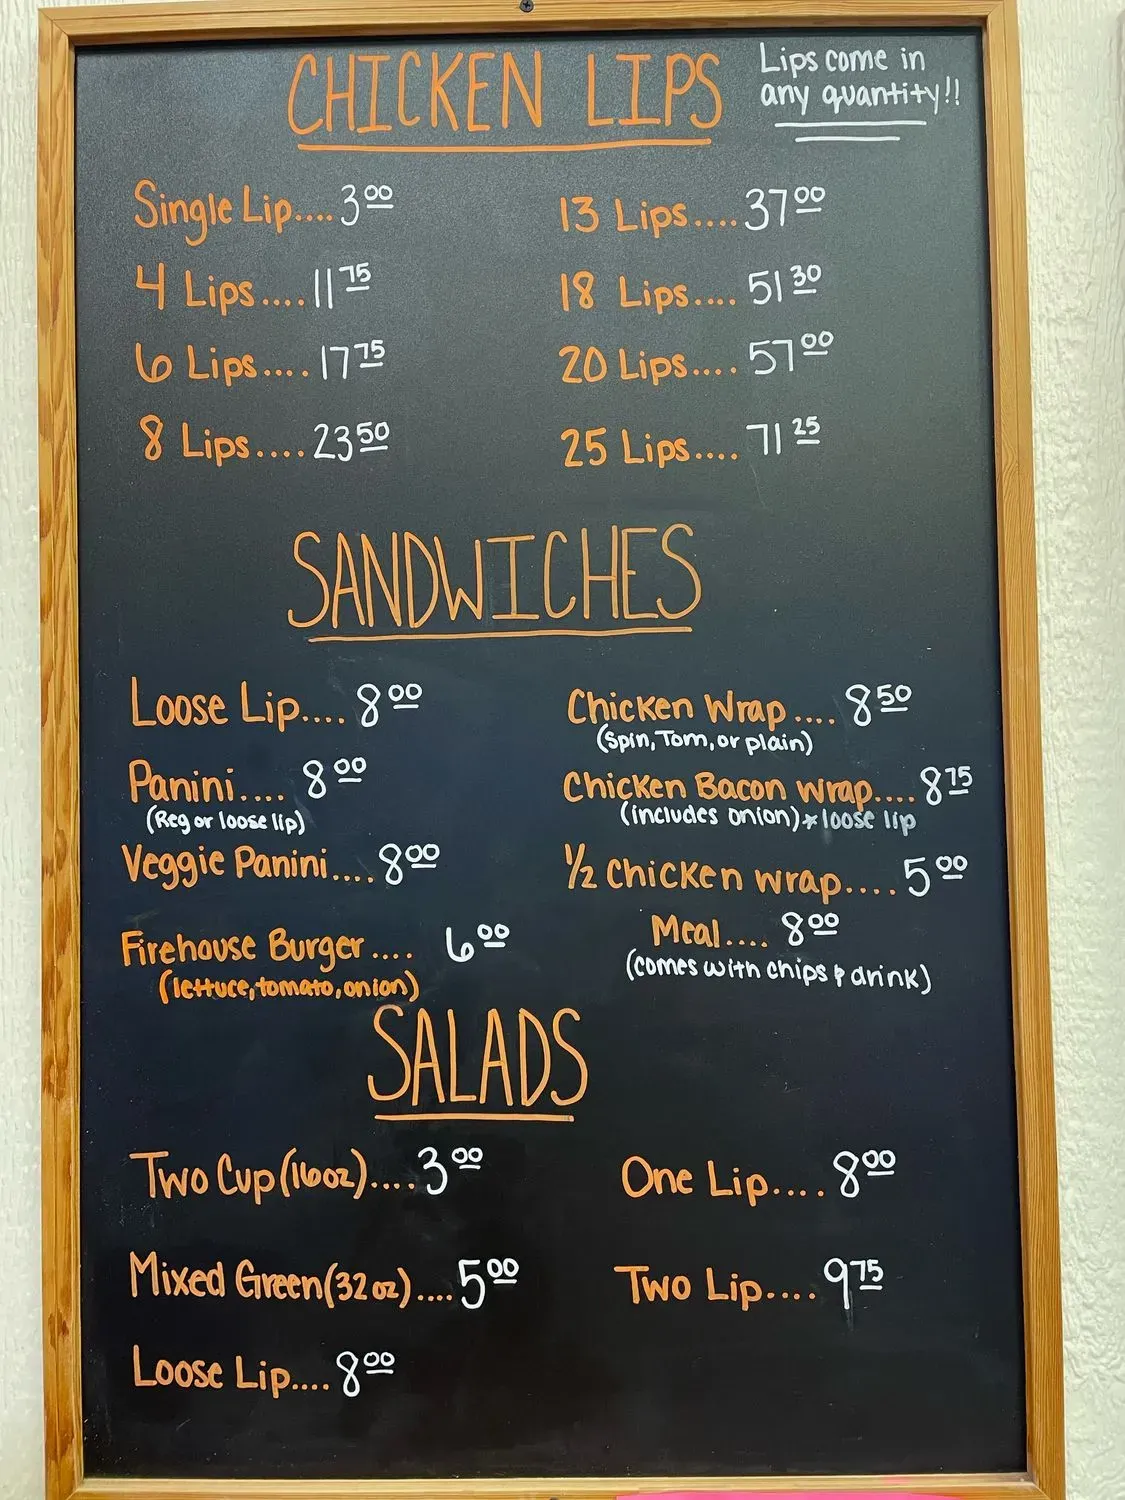 CHICKEN LIPS
Lips come in
any quantity!!
Single Lip.... 3.00
13 Lips.... 37.00
4 Lips.... 11.75
18 Lips.... 51.30
6 Lips.... 17.75
20 Lips.... 57.00
8 Lips.... 23.50
25 Lips.... 71.25
SANDWICHES
Loose Lip.... 8.00
Chicken Wrap .... 8.50
(Spin, Tom, or plain)
Panini.... 8.00
(Reg or loose lip)
Chicken Bacon wrap.... 8.75
(includes onion) * loose lip
Veggie Panini.... 8.00
1/2 Chicken wrap.... 5.00
Meal.... 8.00
(comes with chips & drink)
Firehouse Burger .... 6.00
(lettuce, tomato, onion)
SALADS
Two Cup (16oz).... 3.00
One Lip.... 8.00
Mixed Green (32 oz).... 5.00
Two Lip.... 9.75
Loose Lip.... 8.00